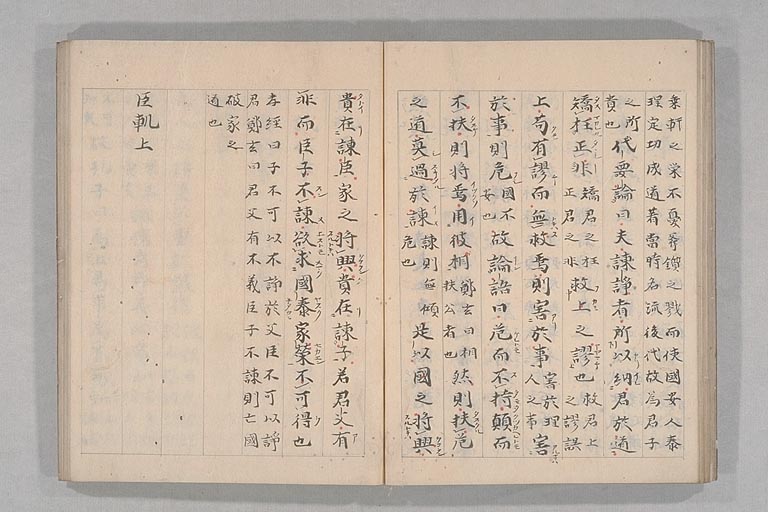 乗軒之栄不憂斧鑕之戮而使國安人泰
理定功成道著當時名流後代故為君子
之所貴也 代要論曰夫諫諍者所以納君於道
矯枉正非 矯君之枉正君之非 救上之謬也 救君上之謬誤
上苟有謬而無救焉則害於事 害於理人之事 害
於事則危 國不安也 故論語曰危而不持顛而
不扶則將焉用彼相 鄭玄曰相扶公者也 然則扶危
之道莫過於諫 諫則無傾危也 是以國之將興
貴在諫臣家之將興貴在諫子若君父有
非而臣子不諫欲求國泰家榮不可得也
孝經曰子不可以不諍於父臣不可以諍
君鄭玄曰君父有不義臣子不諫則亡國
破家之道也
臣軌上